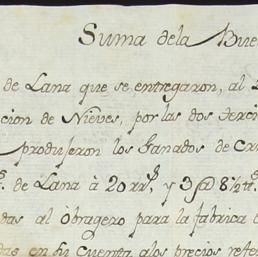 Suma dela Bue
de Lana que se entregaron, al
cion de Nieves, por las dos tercio
produjeron los ganados de Cri
de Lana à 20 rrs, y 3 @ 8½ tts
das al obragero para la fabrica
das en su cuenta alos precios refe